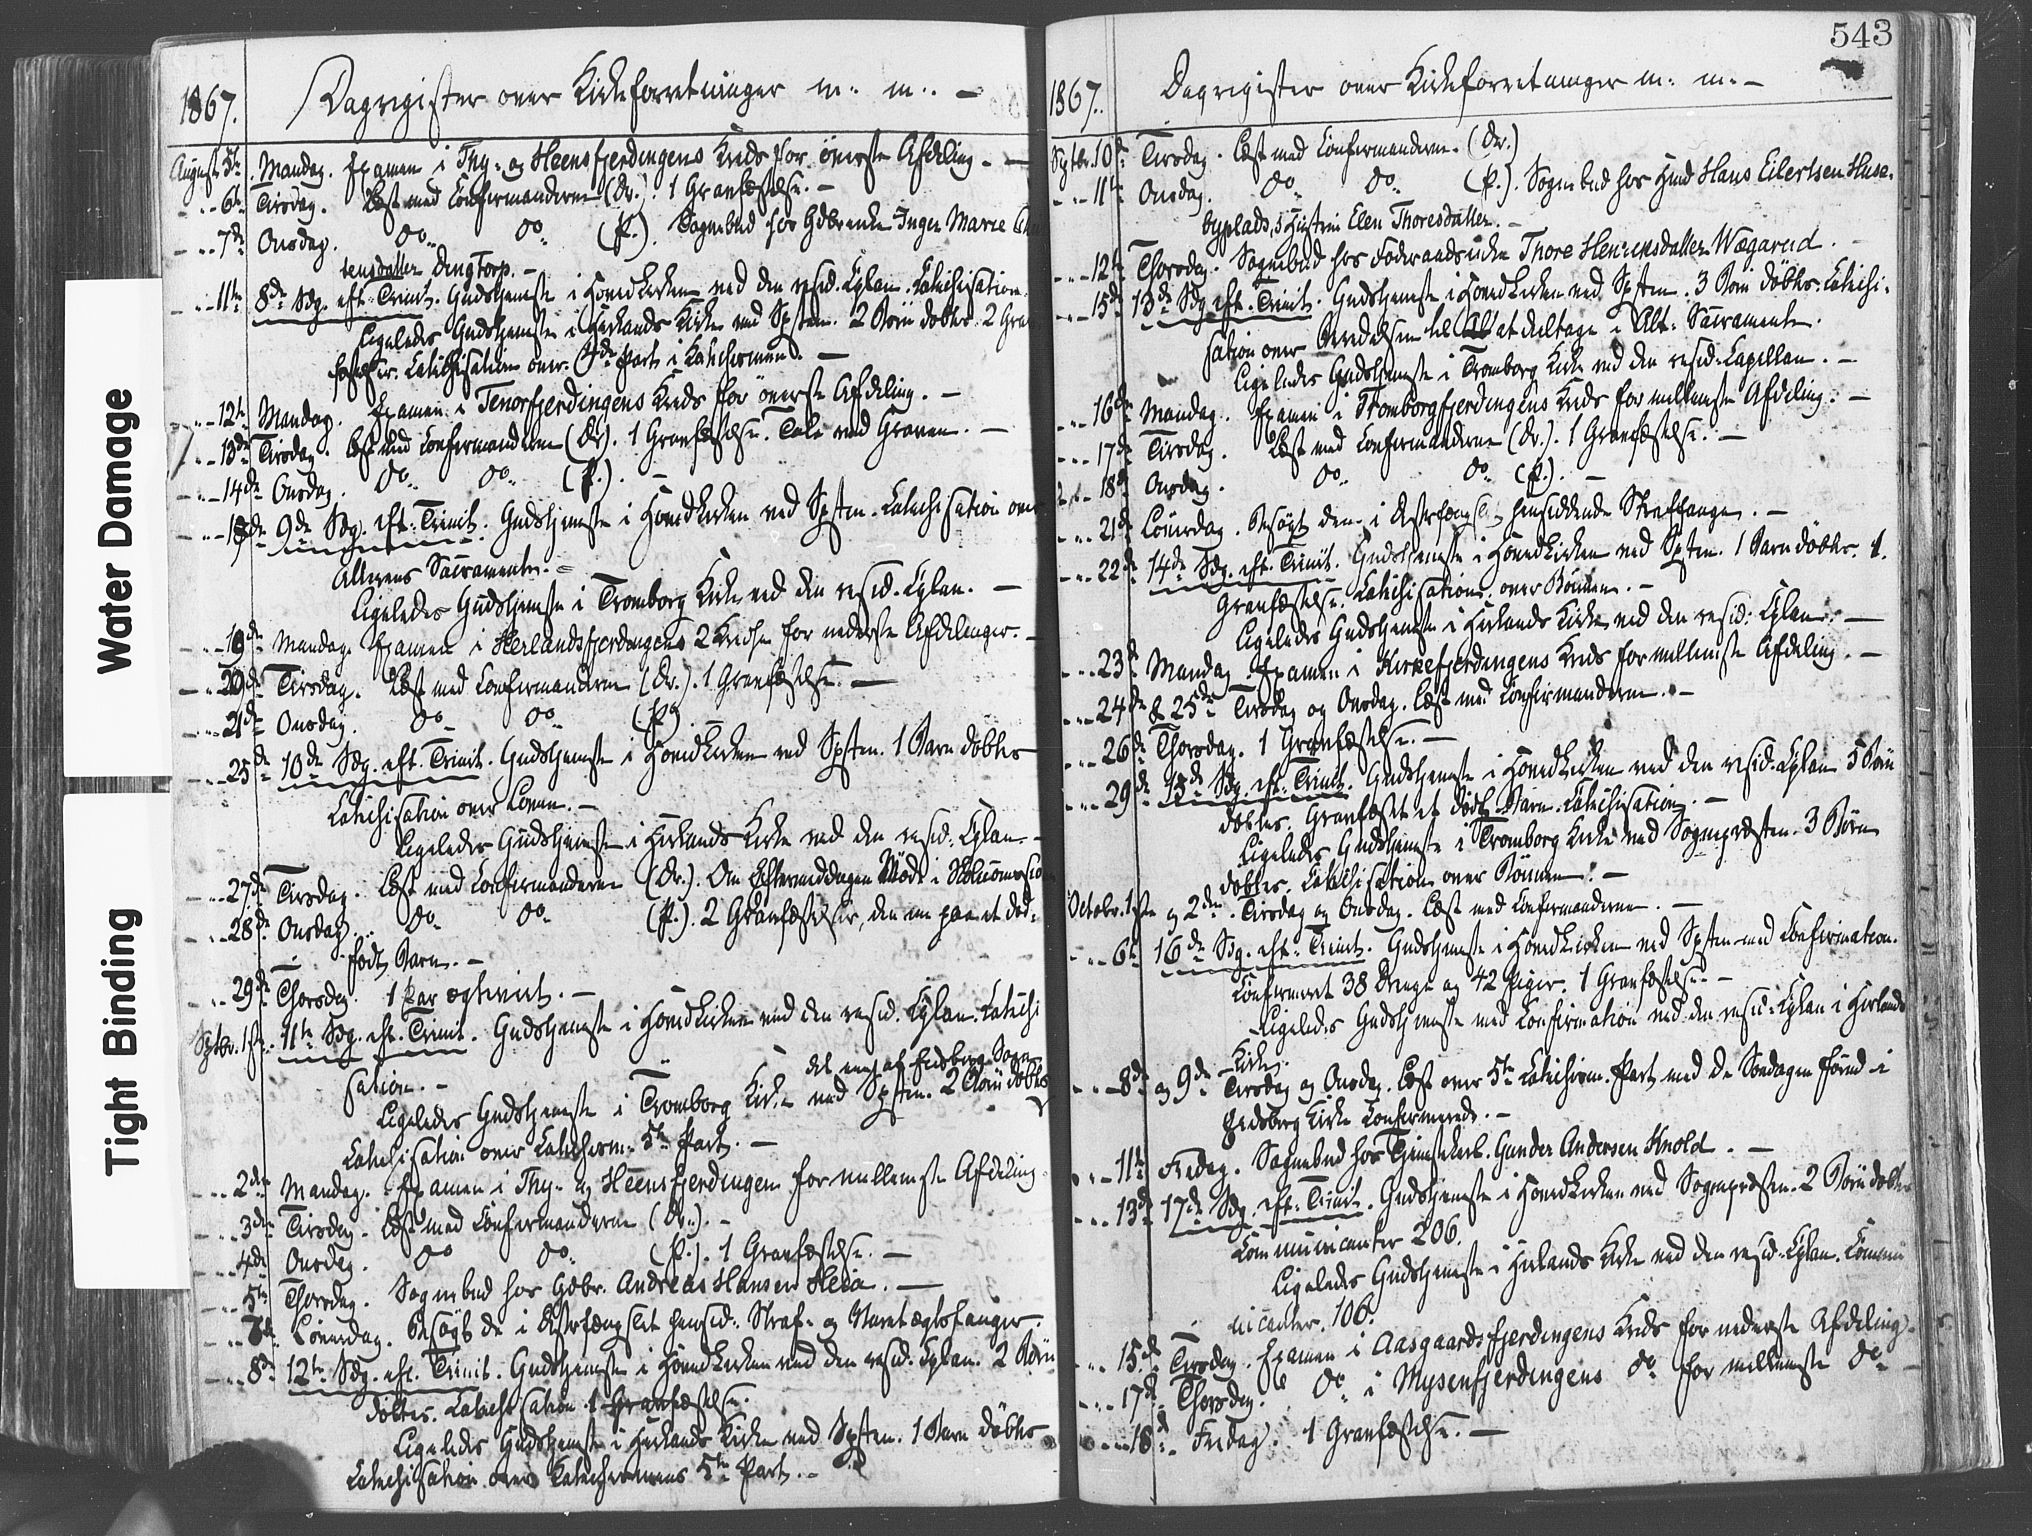 Water Damage
Tight Binding
1867. Dagregister over Kirkeforretninger m. m. —
August 5te Mandag. Examen i Thy- og Heensfjerdingens Kreds for överste Afdeling. —
- „ - 6te Tirsdag. Læst med Confirmanderne (Dr.). 1 Gravfæstelse. —
- „ - 7de Onsdag. Do Do (P.). Sognebud hos Gdbrenke Inger Marie
tensdatter Dingtorp. —
- „ - 11te 8de Sdg. eft. Trinit. Gudstjeneste i Hovedkirken ved den resid. Cplan. Catechisation.
Ligeledes Gudstjeneste i Herlands Kirke ved Spsten. 2 Börn döbtes. 2 Grav
fæstelser. Catechisation over 4de Part i Katechismen. —
- „ - 12te Mandag. Examen i Tenorfjerdingens Kreds for överste Afdeling. —
- „ - 13de Tirsdag. Læst med Confirmanderne (Dr). 1 Gravfæstelse. Tale ved Graven. —
- „ - 14de Onsdag. Do Do (P.). —
- „ - 18de 9de Sdg. eft. Trinit. Gudstjeneste i Hovedkirken ved Spsten. Catechisation over
Alterens Sacramente. —
Ligeledes Gudstjeneste i Tromborg Kirke ved den resid. Cplan. —
- „ - 19de Mandag. Examen i Herlandsfjerdingens 2 Kredse for nederste Afdelinger. —
- „ - 20de Tirsdag. Læst med Confirmanderne (Dr.). 1 Gravfæstelse. —
- „ - 21de Onsdag. Do Do (P.)
- „ - 25de 10de Sdg. eft. Trinit. Gudstjeneste i Hovedkirken ved Spsten. 1 Barn döbtes
Catechisation over Loven. —
Ligeledes Gudstjeneste i Herlands Kirke ved den resid. Cplan. —
- „ - 27de Tirsdag. Læst med Confirmanderne (Dr.). Om Eftermiddagen Möde i
- „ - 28de Onsdag. Do Do (P.). 2 Gravfæstelser, den ene paa et död-
födt Barn. —
- „ - 29de Thorsdag. 1 Par ægteviet. —
Sptbr. 1ste 11te Sdg. eft. Trinit. Gudstjeneste i Hovedkirken ved den resid. Cplan. Catechi
sation. —
det ene af Eidsberg Sogn
Ligeledes Gudstjeneste i Tromborg Kirke ved Spsten. 2 Börn döbtes
Catechisation over Catechism. 5te Part. —
- „ - 2den Mandag. Examen i Thy- og Heensfjerdingen for mellemste Afdeling.
- „ - 3die Tirsdag. Læst med Confirmanderne (Dr.). —
- „ - 4de Onsdag. Do Do (P.). 1 Gravfæstelse. —
- „ - 5te Thorsdag. Sognebud hos Gdbr. Andreas Hansen Heia. —
- „ - 7de Löverdag. Besögt de i Distrfængslet hensid. Straf- og Varetægtsfanger.
- „ - 8de 12te Sdg. eft. Trinit. Gudstjeneste i Hovedkirken ved den resid. Cplan. 2 Börn
döbtes. Catechisation 1 Gravfæstelse.
Ligeledes Gudstjeneste i Herlands Kirke ved Spsten. 1 Barn döbtes
Catechisation over Katechismens 5te Part. —
543
1867. Dagregister over Kirkeforretninger m. m. —
Sptbr. 10de Tirsdag. Læst med Confirmanderne. (Dr.)
- „ - 11te Onsdag. Do Do (P.). Sognebud hos Husmd Hans Eilertsen Huse-
byplads, s Hustru Elen Thoresdatter. —
- „ - 12te Thorsdag. Sognebud hos Föderaadsenke Thore Henriksdatter Wægarud. —
- „ - 15de 13de Sdg eft. Trinit. Gudstjeneste i Hovedkirken ved Spsten. 3 Börn döbtes. Catechi-
sation over Beredelsen til at deltage i Alt. Sacramente.
Ligeledes Gudstjeneste i Tromborg Kirke ved den resid. Capellan. —
- „ - 16de Mandag. Examen i Tromborgfjerdingens Kreds for mellemste Afdeling. —
- „ - 17de Tirsdag. Læst med Confirmanderne (Dr.). 1 Gravfæstelse. —
- „ - 18de Onsdag. Do Do (P.). —
- „ - 21de Löverdag. Besögt den i Distrfængslet hensiddende Straffange. —
- „ - 22de 14de Sdg. eft. Trinit. Gudstjeneste i Hovedkirken ved Spsten. 1 Barn döbtes. 1
Gravfæstelse. Catechisation over Bönnen. —
Ligeledes Gudstjeneste i Herlands Kirke ved den resid. Cplan. —
- „ - 23de Mandag Examen i Kirkefjerdingens Kreds for mellemste Afdeling. —
- „ - 24de & 25de Tirsdag og Onsdag. Læst med Confirmanderne. —
- „ - 26de Thorsdag. 1 Gravfæstelse. —
- „ - 29de 15de Sdg. eft. Trinit. Gudstjeneste i Hovedkirken ved den resid. Cplan 5 Börn
döbtes. Gravfæstet et dödf. Barn. Catechisation. —
Ligeledes Gudstjeneste i Tromborg Kirke ved Sognepræsten. 3 Börn
döbtes. Catechisation over Bönnen. —
Octobr. 1ste og 2den Tirsdag og Onsdag. Læst med Confirmanderne. —
- „ - 6te 16de Sdg. eft. Trinit. Gudstjeneste i Hovedkirken ved Spsten med Confirmation.
Confirmeret 38 Drenge og 42 Piger. 1 Gravfæstelse. —
Ligeledes Gudstjeneste med Confirmation ved den resid. Cplan i Herlands
Kirke.
- „ - 8de og 9de Tirsdag og Onsdag. Læst over 5te Catechism. Part med de Söndagen förud i
Eidsberg Kirke Confirmerede. —
- „ - 11te Fredag. Sognebud hos Tjenestekarl. Gunder Andersen Knold. —
- „ - 13de 17de Sdg. eft. Trinit. Gudstjeneste i Hovedkirken ved Sognepræsten. 2 Börn döbtes
Communicanter 206.
Ligeledes Gudstjeneste i Herlands Kirke ved den resid. Cplan. Commu
nicanter. 106.
- „ - 15de Tirsdag. Examen i Aasgaardsfjerdingens Kreds for nederste Afdeling.
- „ - 17de Thorsdag. Do i Mysenfjerdingens Do for mellemste Do —
- „ - 18de Fredag. 1 Gravfæstelse. —